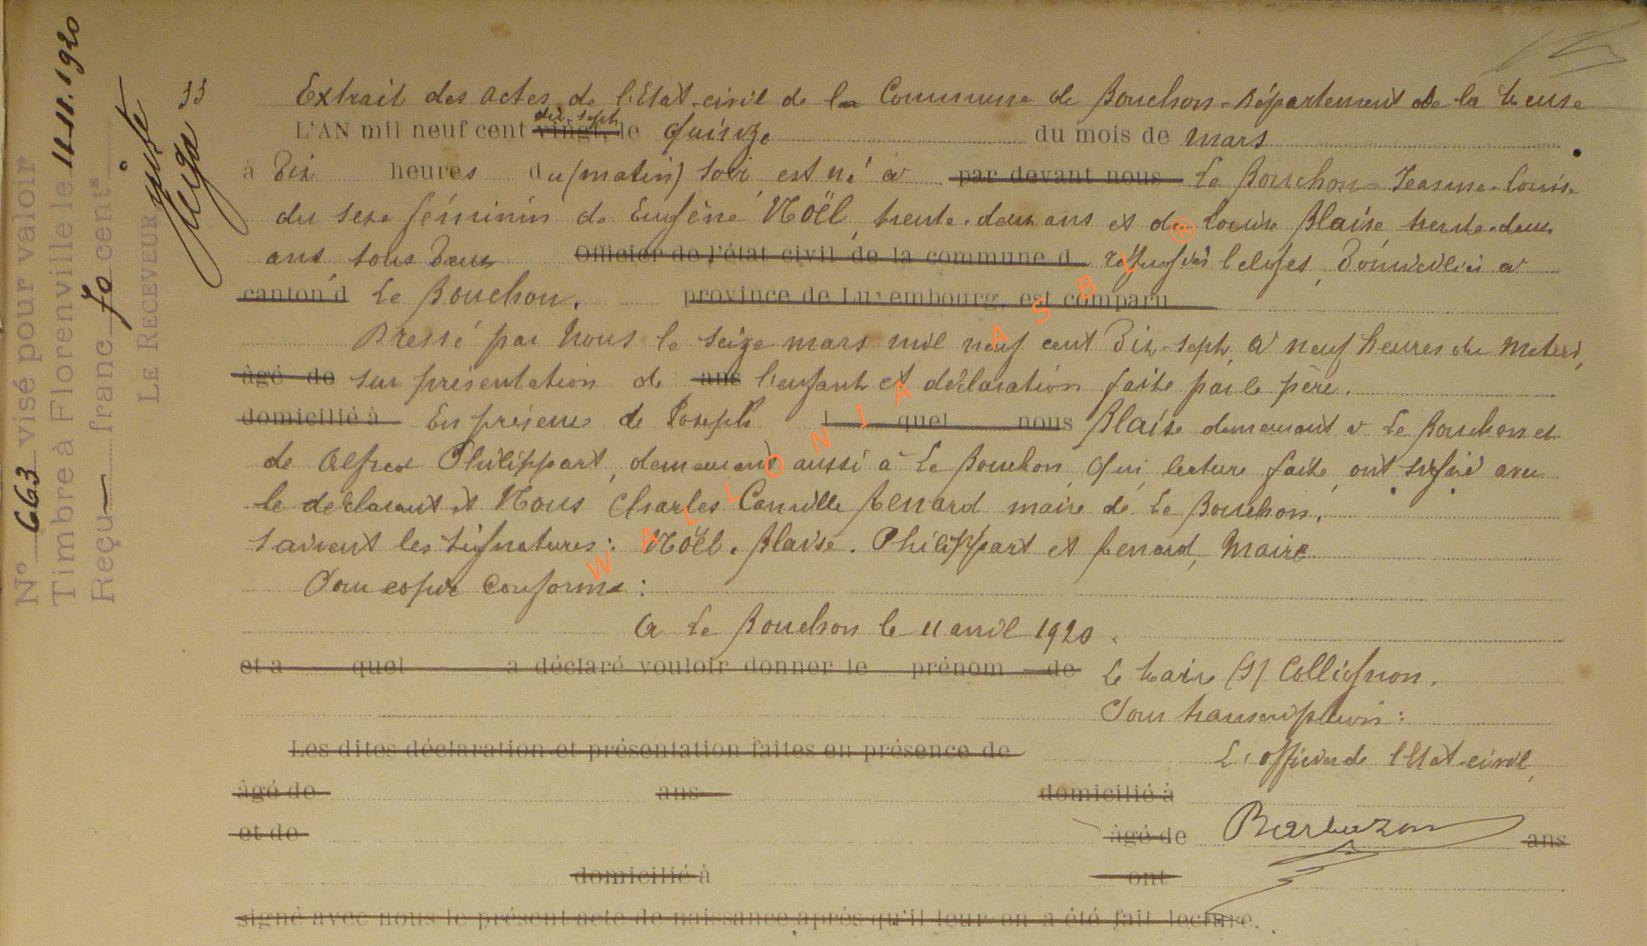 N° 663 visé pour valoir
Timbre à Florenville le 11.11.1920
Reçu — franc 50 cents
LE RECEVEUR
33
Extrait des actes de l'Etat-civil de la Commune de Bouchon-Département de la Meuse
dix-sept
L'AN mil neuf cent vingt, le quinze du mois de mars
à Dix heures du (matin) soir est né à par devant nous Le Bouchon Jeanne-Louise
du sexe féminin de Eugène Noël, trente-deux ans et de Louise Blaise trente-deux
ans tous deux Officier de l'état civil de la commune d réfugiés belges, domiciliés à
canton d Le Bouchon. province de Luxembourg, est comparu
Dressé par Nous le seize mars mil neuf cent Dix-sept, à neuf heures du matin,
âgé de sur présentation de ans l'enfant et déclaration faite par le père.
domicilié à En présence de Joseph l quel nous Blaise demeurant à Le Bouchon et
de Alfred Philippart, demeurant aussi à Le Bouchon qui, lecture faite, ont signé avec
le déclarant et Nous Charles Camille Renard maire de Le Bouchon.
Suivent les signatures: Noël. Blaise. Philippart et Renard, Maire
Pour copie conforme:
A Le Bouchon le 11 avril 1920.
et a quel a déclaré vouloir donner le prénom de Le Maire (s) Collignon.
Pour transcription:
Les dites déclaration et présentation faites en présence de L'officier de l'Etat-civil,
âgé de ans domicilié à
et de âgé de Barbazon ans
domicilié à ont
signé avec nous le présent acte de naissance après qu'il leur en a été fait lecture.
WALLONIA ASBL ®